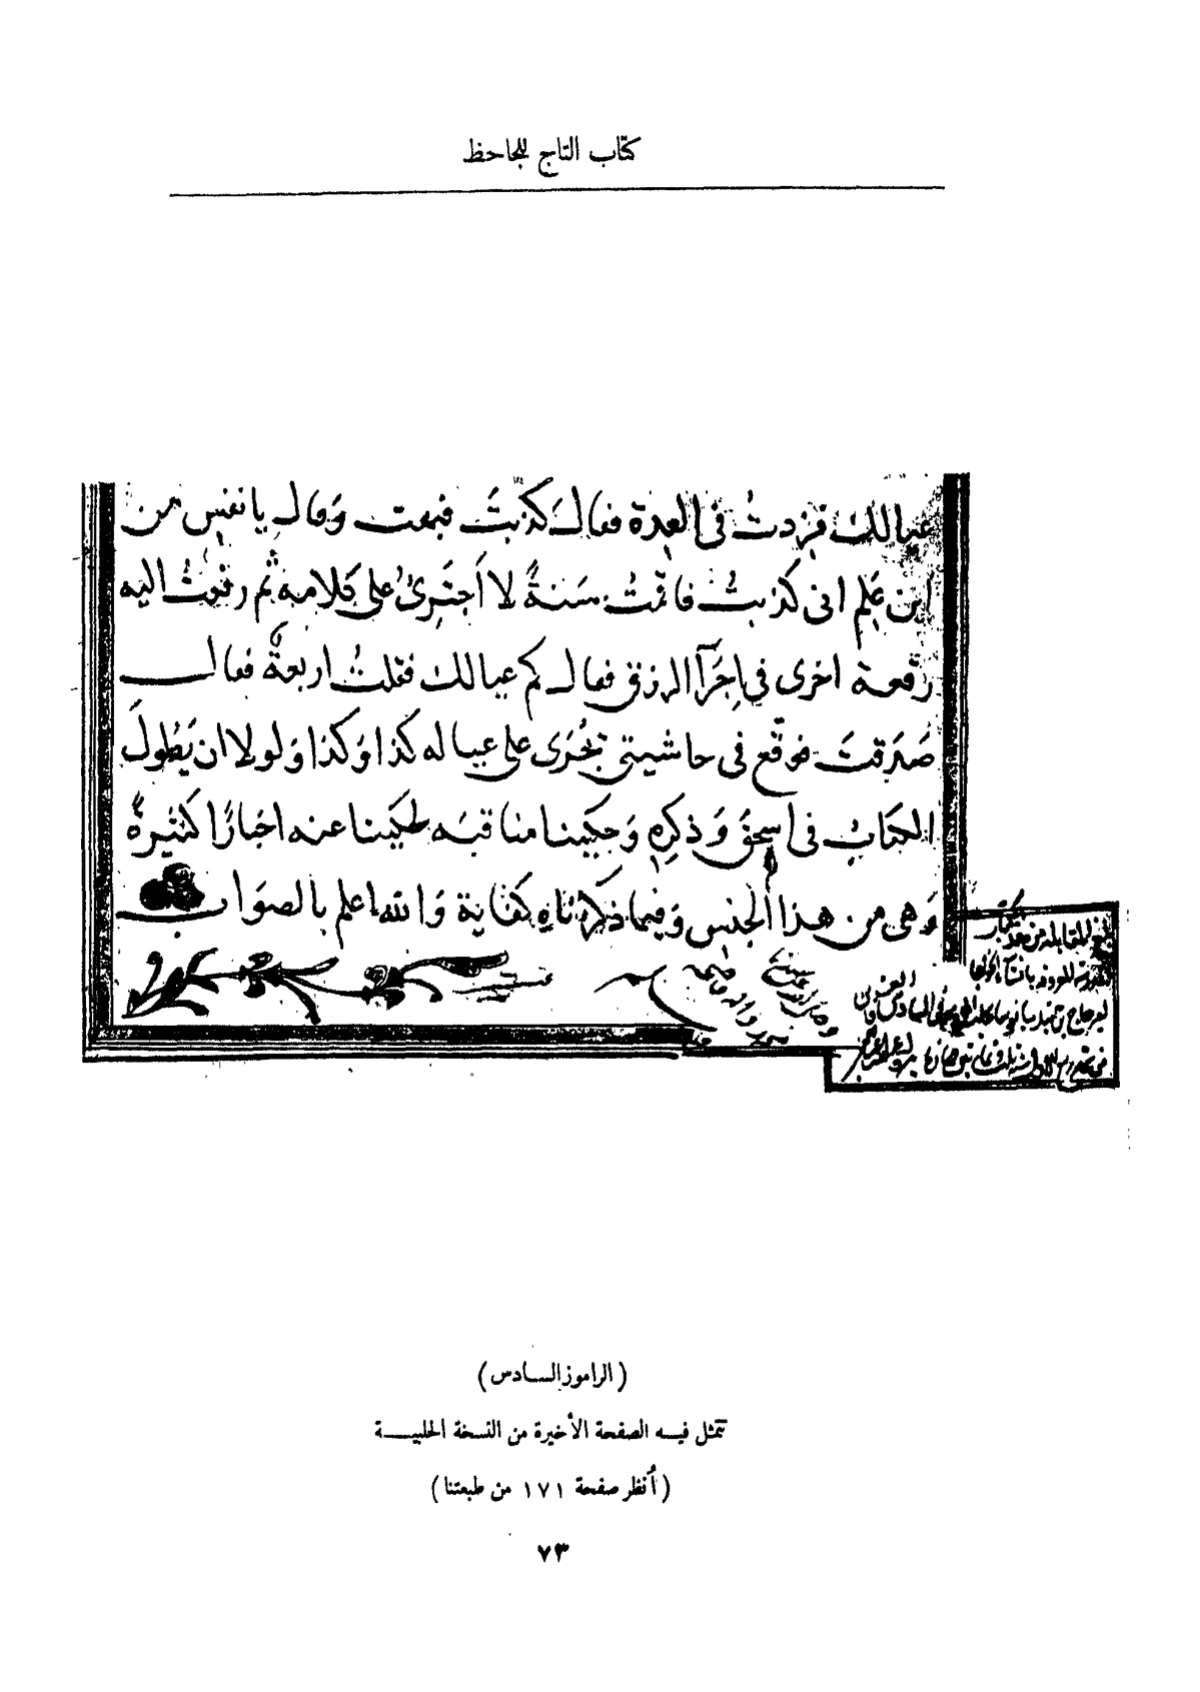 كتاب التاج للجاحظ
عيالك فزدتُ فى العِدة فقال كذبتَ فبهت وَقال يا نفس من
اين عَلِم انى كذبتُ فاقمتُ سَنةً لا اَجتَرِئُ على كلامه ثم رفعتُ اليه
رقعة اخرى في اِجرَآ الرزق فقال كم عيالك فقلتُ اربعةٌ فقال
صَدَقتَ فوقّع فى حاشيتى يُجرَى على عياله كذا وَكذا وَلولا ان يَطُولَ
الكتابُ فى اسحقَ وَذكرِهِ وَحكَينا مناقبَه لحكَينا عنه اخبارًا كثيرةً
وَهى من هذا الجنسِ وَفيما ذكرناه كفاية وَالله اعلم بالصوَاب
بلغ المقابلة من
(الراموز السادس)
تتمثل فيه الصفحة الأخيرة من النسخة الحلبية
(أُنظر صفحة ١٧١ من طبعتنا)
٧٣